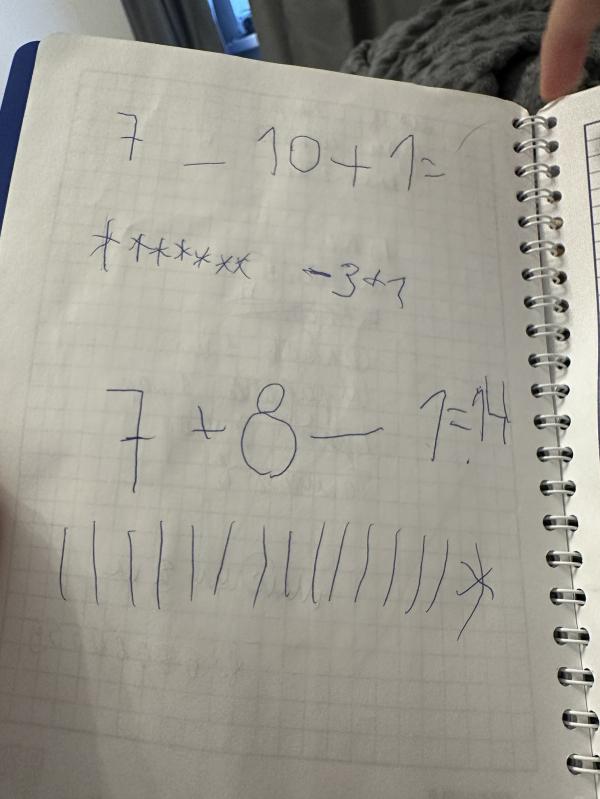 7 - 10 + 1 =
******* - 3 + 1
7 + 8 - 1 = 14
||||||||||||||*